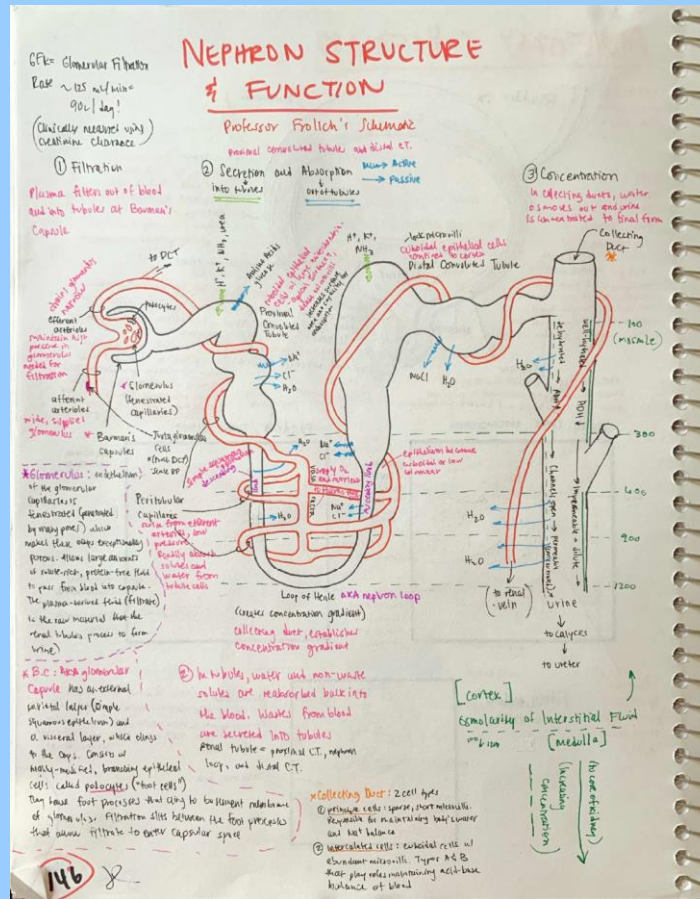 NEPHRON STRUCTURE
& FUNCTION
Professor Frolich's Schematic
GFR= Glomerular Filtration
Rate ~125 ml/min=
90L/day!
(Clinically measured using
creatinine clearance)
proximal convoluted tubule and distal c.T.
① Filtration
Plasma filters out of blood
and into tubules at Bowman's
Capsule
② Secretion and Absorption
into tubules
out of tubules
Active
Passive
③ Concentration
In collecting ducts, water
osmoses out and urine
is concentrated to final form
Collecting
Duct *
to DCT
H+, K+, NH3, urea
Amino Acids
glucose
Proximal
Convoluted
Tubule
H+, K+,
NH3
lack microvilli
cuboidal epithelial cells
confined to cortex
Distal Convoluted Tubule
efferent
arterioles
podocytes
maintains high
pressure in
glomerulus
needed for
filtration
afferent
arterioles
wide, supplies
glomerulus
* Glomerulus
(fenestrated
capillaries)
* Bowman's
capsules
Juxtaglomerular
cells
Na+
Cl-
H2O
NaCl
H2O
100
(mosmole)
300
600
900
1200
dehydrated
well-hydrated
ADH↑
ADH↓
H2O
H2O
H2O
channels open
impermeable = dilute
H2O
Na+
Cl-
descending
limb
ascending limb
supply O2
and nutrients
H2O
Na+
Cl-
epithelium becomes
cuboidal or low
columnar
Peritubular
Capillaries
arise from efferent
arterioles, low
pressure.
Readily absorb
solutes and
water from
tubule cells
Loop of Henle AKA nephron loop
(creates concentration gradient)
collecting duct, establishes
concentration gradient
(to renal
vein)
urine
to calyces
to ureter
*Glomerulus: endothelium
of the glomerular
capillaries is
fenestrated (penetrated
by many pores) which
makes these caps exceptionally
porous. Allows large amounts
of solute-rich, protein-free fluid
to pass from blood into capsule.
The plasma-derived fluid (filtrate)
is the raw material that the
renal tubules process to form
urine)
* B.C: AKA glomerular
Capsule has an external
parietal layer (simple
squamous epithelium) and
a visceral layer, which clings
to the caps. Consists of
highly-modified, branching epithelial
cells called podocytes ("foot cells")
They have foot processes that cling to basement membrane
of glomerulus. Filtration slits between the foot processes
that allow filtrate to enter capsular space
② In tubules, water and non-waste
solutes are reabsorbed back into
the blood. Wastes from blood
are secreted INTO tubules
Renal tubule = proximal C.T., nephron
loop, and distal C.T.
*Collecting Duct: 2 cell types
① principle cells: sparse, short microvilli.
Responsible for maintaining body's water
and Na+ balance
② intercalated cells: cuboidal cells w/
abundant microvilli. Types A & B
that play roles maintaining acid-base
balance of blood
[cortex]
Osmolarity of Interstitial Fluid
[medulla]
(to core of kidney)
(increasing
concentration)
146